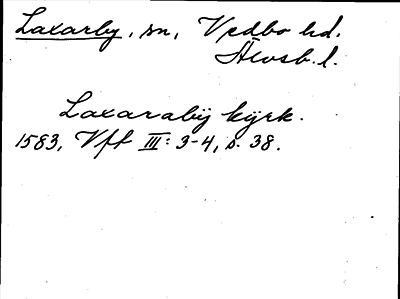 Laxarby, sn, Vedbo hd.
Älvsb. l.
Laxaraby kyrk.
1583, Vft III: 3-4, s. 38.